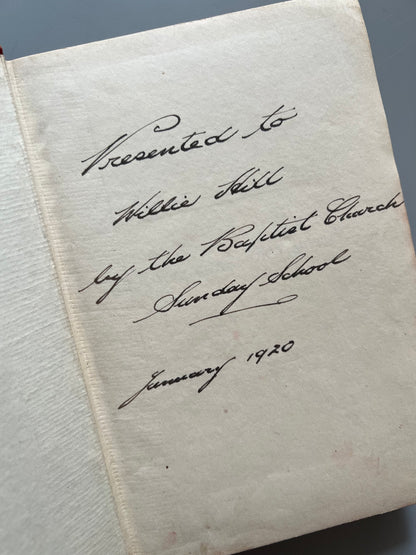 Presented to
Willie Hill
by the Baptist Church
Sunday School
January 1920